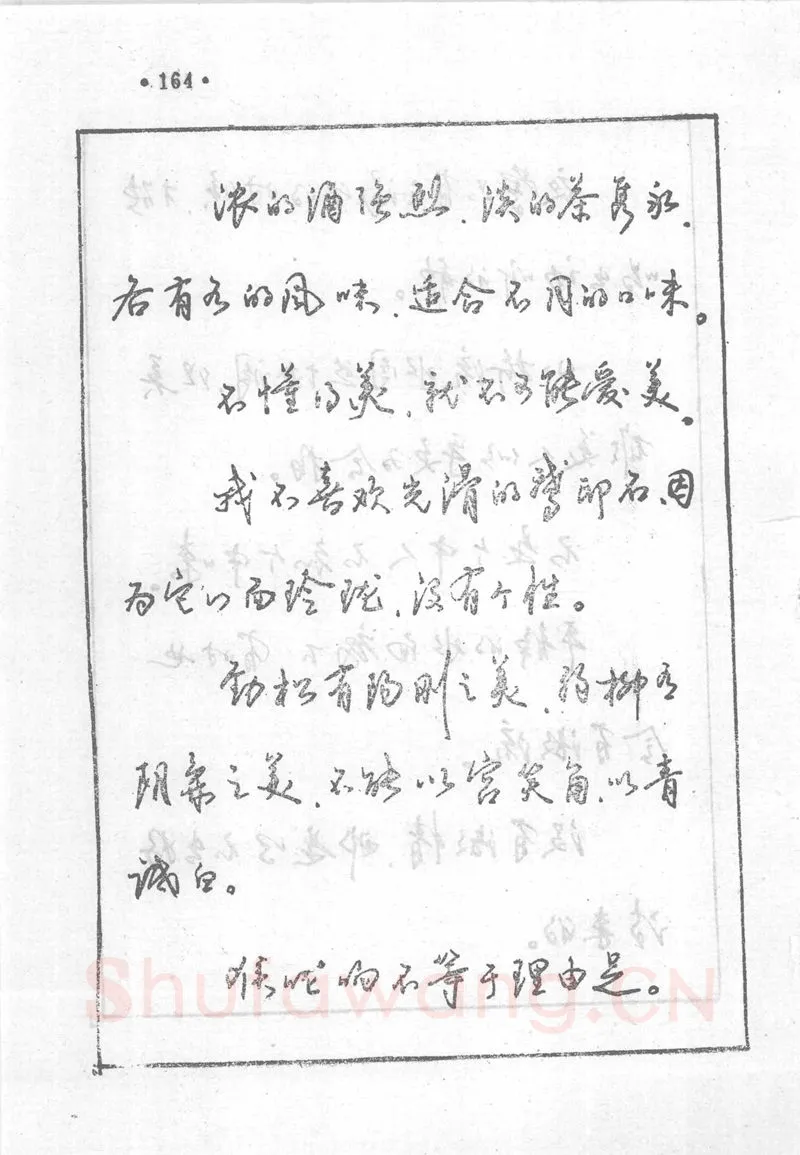 ·164·
浓的酒强烈、淡的茶隽永、
各有各的风味、适合不同的口味。
不懂得美、就不可能爱美。
我不喜欢光滑的鹅卵石、因
为它八面玲珑、没有个性。
劲松有阳刚之美、杨柳有
阴柔之美、不能以宫笑角、以青
诚白。
喉咙响不等于理由足。
Shufawang.CN